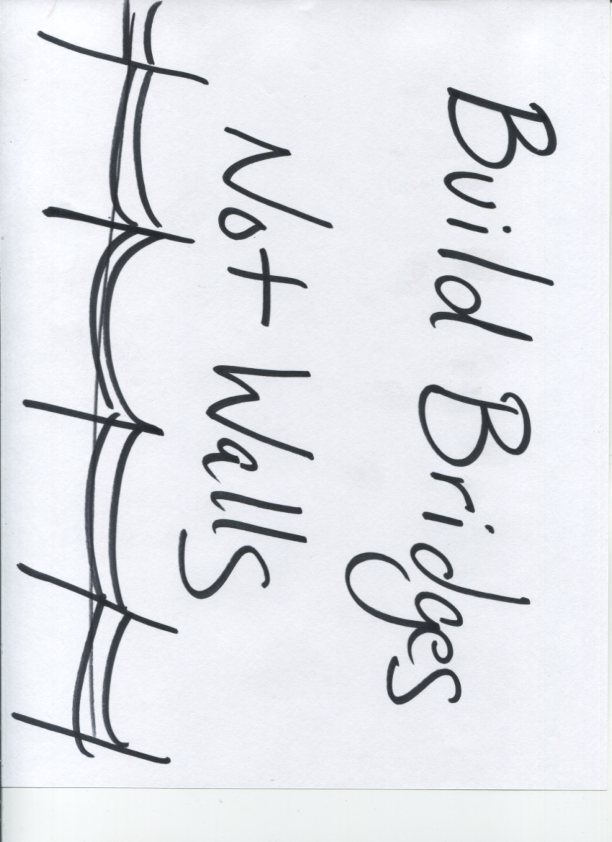 Build Bridges
Not Walls